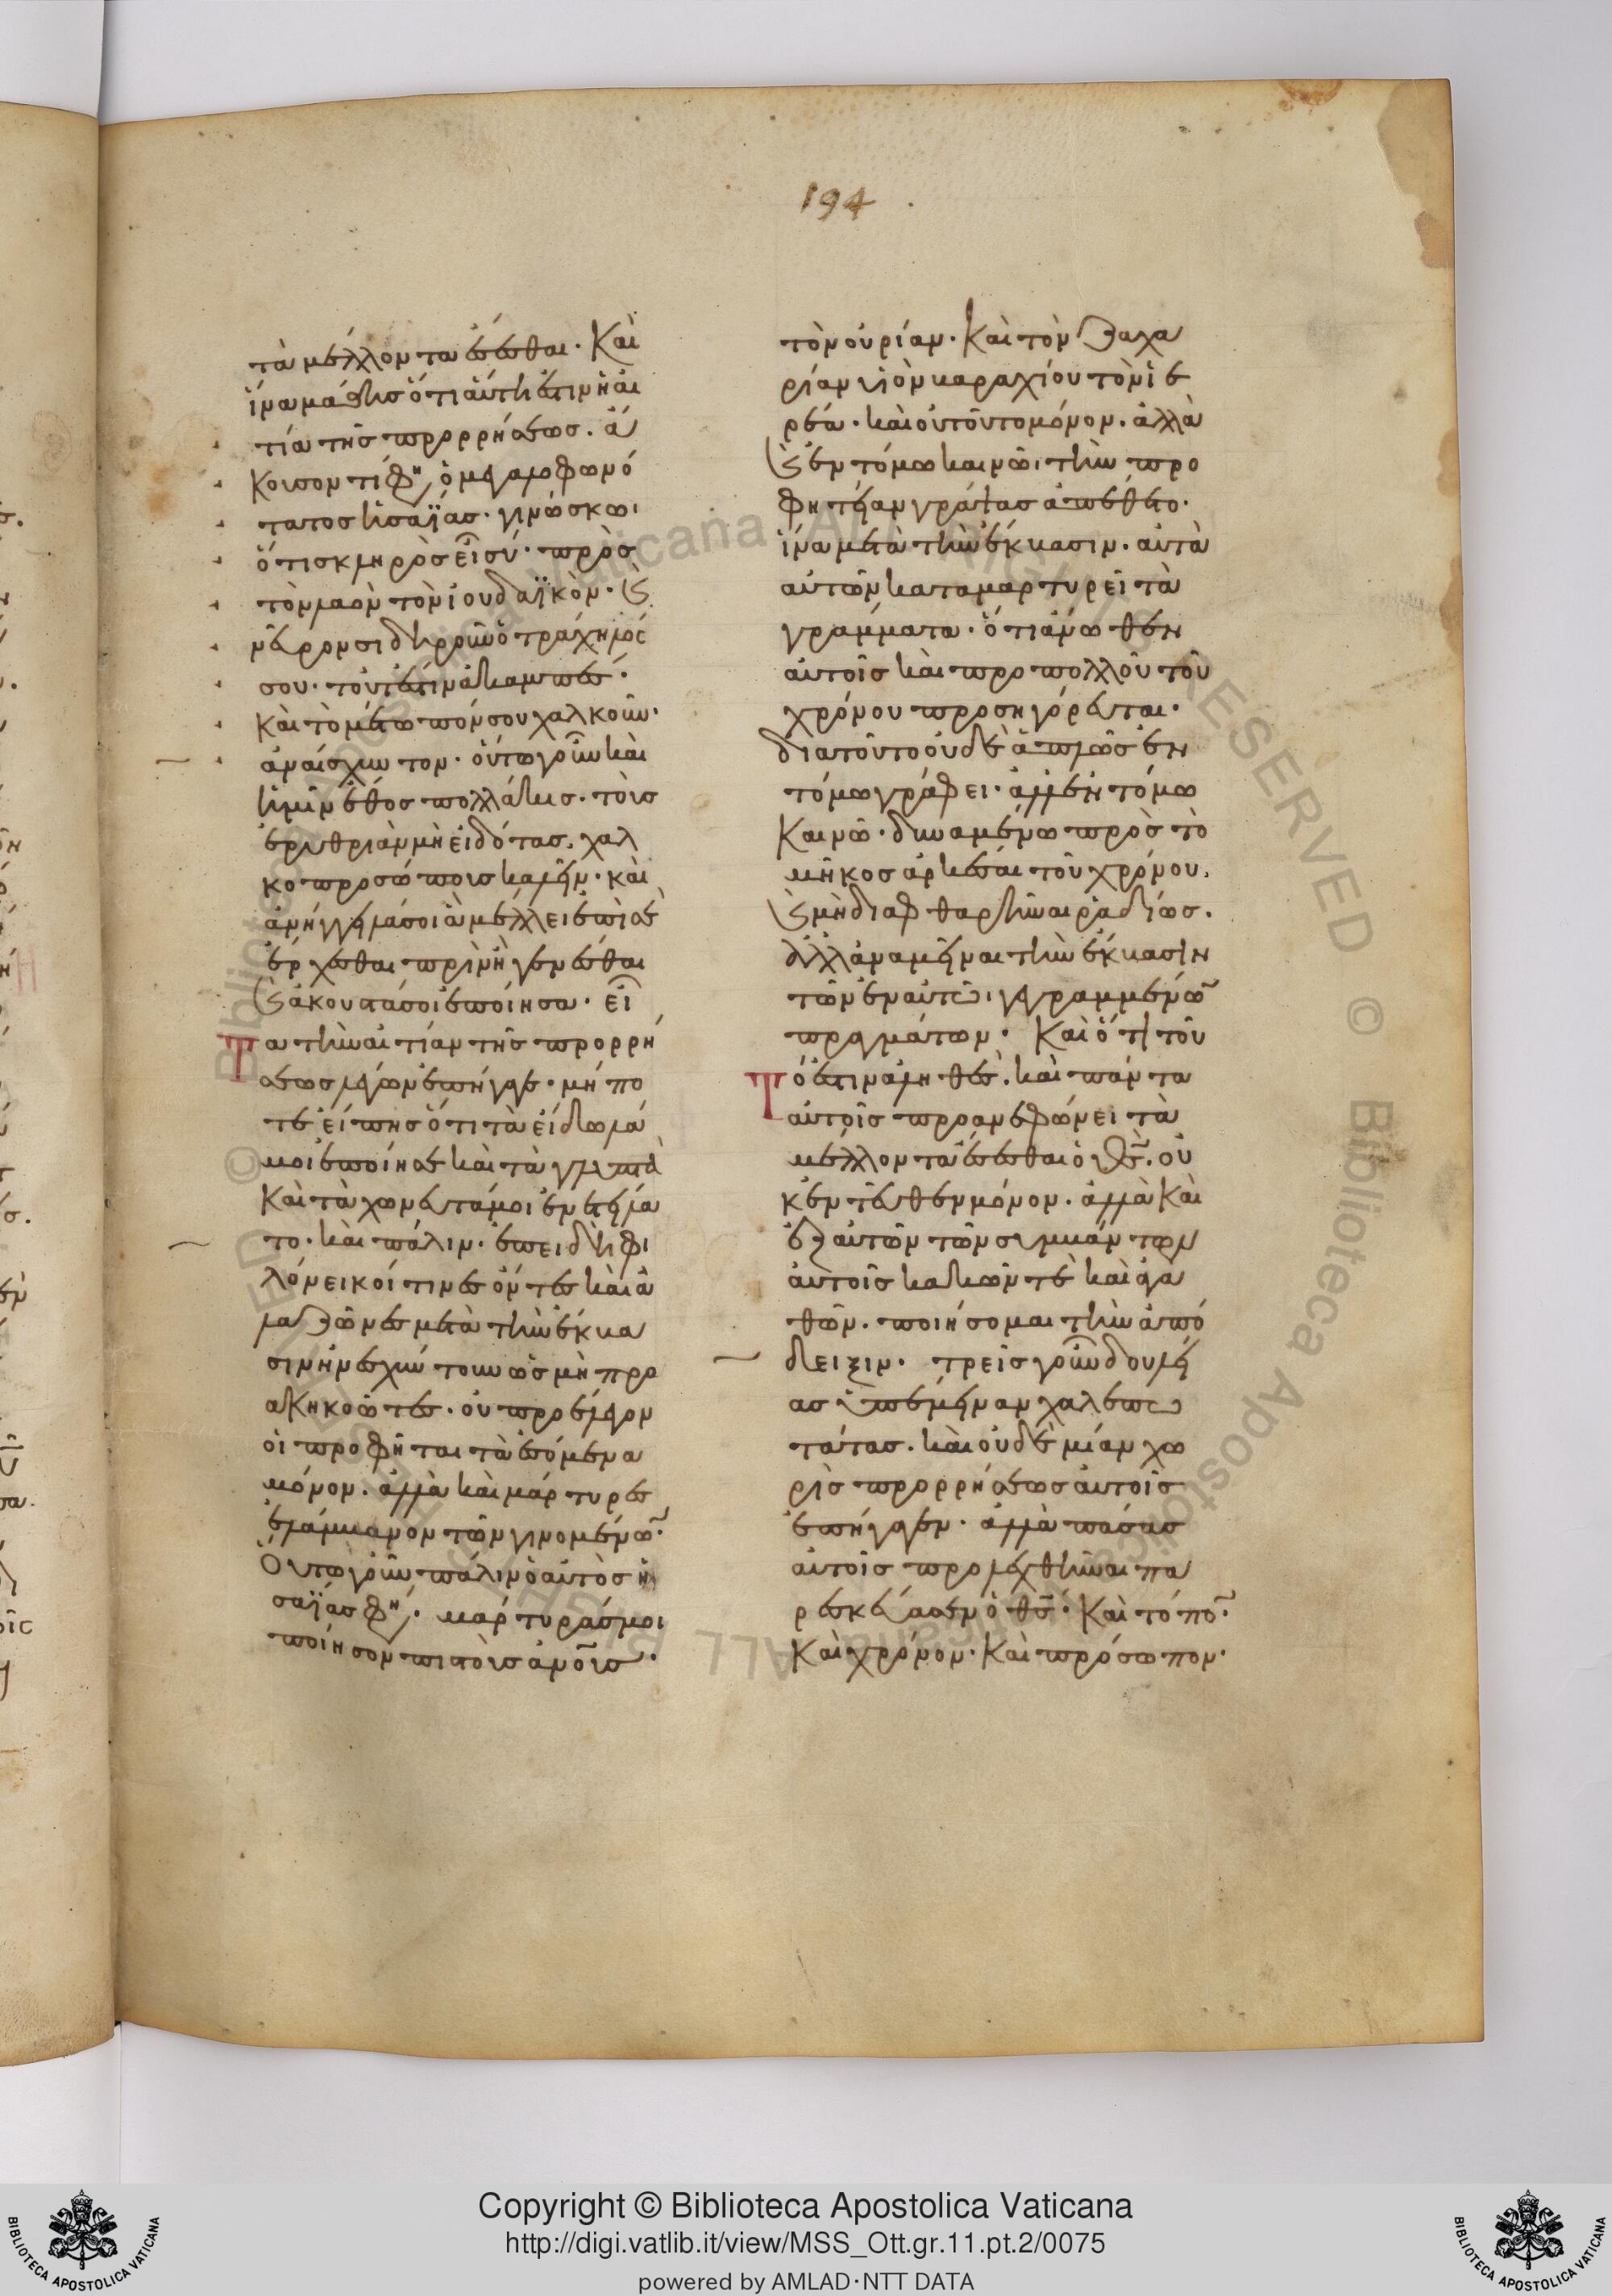 194
τὰ μέλλοντα ἔσεσθαι. Καὶ
ἵνα μάθῃς ὅτι αὕτη ἐστὶν ἡ αἰ
τία τῆς προρρήσεως. ἄ
κουσον τί φη, ὁ μεγαλοφωνό
τατος ἡσαΐας. γινώσκω.
ὅτι σκληρὸς εἶ σύ. πρὸς
τὸν λαὸν τὸν ἰουδαϊκόν. καὶ
νεῦρον σιδηροῦν ὁ τράχηλός
σου. τουτέστιν ἀκαμπές.
Καὶ τὸ μέτωπόν σου χαλκοῦν.
ἀναίσχυντον. οὕτω γοῦν καὶ
ἡμῖν ἔθος πολλάκις. τοὺς
ἐρυθριᾶν μὴ εἰδότας, χαλ
κοπροσώπους καλεῖν. καὶ
ἀνήγγειλά σοι ἃ μέλλει ἐπὶ σὲ
ἔρχεσθαι πρὶν ἢ γενέσθαι
καὶ ἀκουστά σοι ἐποίησα. εἶ
τα τὴν αἰτίαν τῆς προρρή
σεως λέγων ἐπήγαγε. μή πο
τε εἴπῃς ὅτι τὰ εἴδωλά
μοι ἐποίησε καὶ τὰ γλυπτὰ
Καὶ τὰ χωνευτά μοι ἐνετείλα
το. καὶ πάλιν. ἐπειδὴ φι
λόνεικοί τινες ὄντες καὶ ἀ
λαζῶνες μετὰ τὴν ἔκβα
σιν ἠναισχύντουν ὡς μὴ προ
ακηκοῶτες. οὐ προέλεγον
οἱ προφῆται τὰ ἐσόμενα
μόνον. ἀλλὰ καὶ μάρτυρας
ἐλάμβανον τῶν γινομένω̅.
Οὕτω γοῦν πάλιν ὁ αὐτὸς ἡ
σαΐας φη. μάρτυράς μοι
ποίησον πιστοὺς ἀν̅ους.
τὸν οὐρίαν. Καὶ τὸν ζαχα
ρίαν υἱὸν βαραχίου τὸν ἱε
ρέα. καὶ οὐ τοῦτο μόνον. ἀλλὰ
καὶ ἐν τόμω καινῶ, τὴν προ
φητείαν γράψας ἀπέθετο.
ἵνα μετὰ τὴν ἔκβασιν. αὐτὰ
αὐτῶν καταμαρτυρεῖ τὰ
γράμματα. ὅτι ἄνωθεν
αὐτοῖς καὶ προ πολλοῦ τοῦ
χρόνου προσηγόρευται.
διατοῦτο οὐδὲ ἁπλῶς ἐν
τόμω γράφει. ἀλλ' ἐν τόμω
Καινῶ. δυναμένω πρὸς τὸ
μῆκος ἀρκέσαι τοῦ χρόνου.
καὶ μὴ διαφθαρῆναι ῥαδίως.
ἀλλ' ἀναμεῖναι τὴν ἔκβασιν
τῶν ἐν αὐτῶ, γεγραμμένω̅
πραγμάτων. Καὶ ὅτι τοῦ
τό ἐστιν ἀληθές. καὶ πάντα
αὐτοῖς προανεφώνει τὰ
μέλλοντα ἔσεσθαι ὁ θς̅. οὐ
κ ἐντεῦθεν μόνον. ἀλλὰ καὶ
ἐξ αὐτῶν τῶν συμβάντων
αὐτοῖς κακῶν τὲ καὶ ἀγα
θῶν. ποιήσομαι τὴν ἀπό
δειξιν. τρεῖς γοῦν δουλεί
ας ὑπέμειναν χαλεπω
τάτας. καὶ οὐδὲ μίαν χω
ρὶς προρρήσεως αὐτοῖς
ἐπήγαγεν. ἀλλὰ πάσας
αὐτοῖς προλεχθῆναι πα
ρεσκεύασεν ὁ θς̅. Καὶ τόπο̅.
Καὶ χρόνον. Καὶ πρόσωπον.
© Biblioteca Apostolica Vaticana ALL RIGHTS RESERVED
Copyright © Biblioteca Apostolica Vaticana
http://digi.vatlib.it/view/MSS_Ott.gr.11.pt.2/0075
powered by AMLAD·NTT DATA
BIBLIOTECA APOSTOLICA VATICANA
BIBLIOTECA APOSTOLICA VATICANA